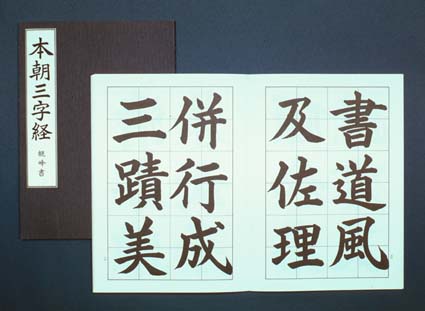 本朝三字経
観峰書
書道風
及佐理
併行成
三蹟美